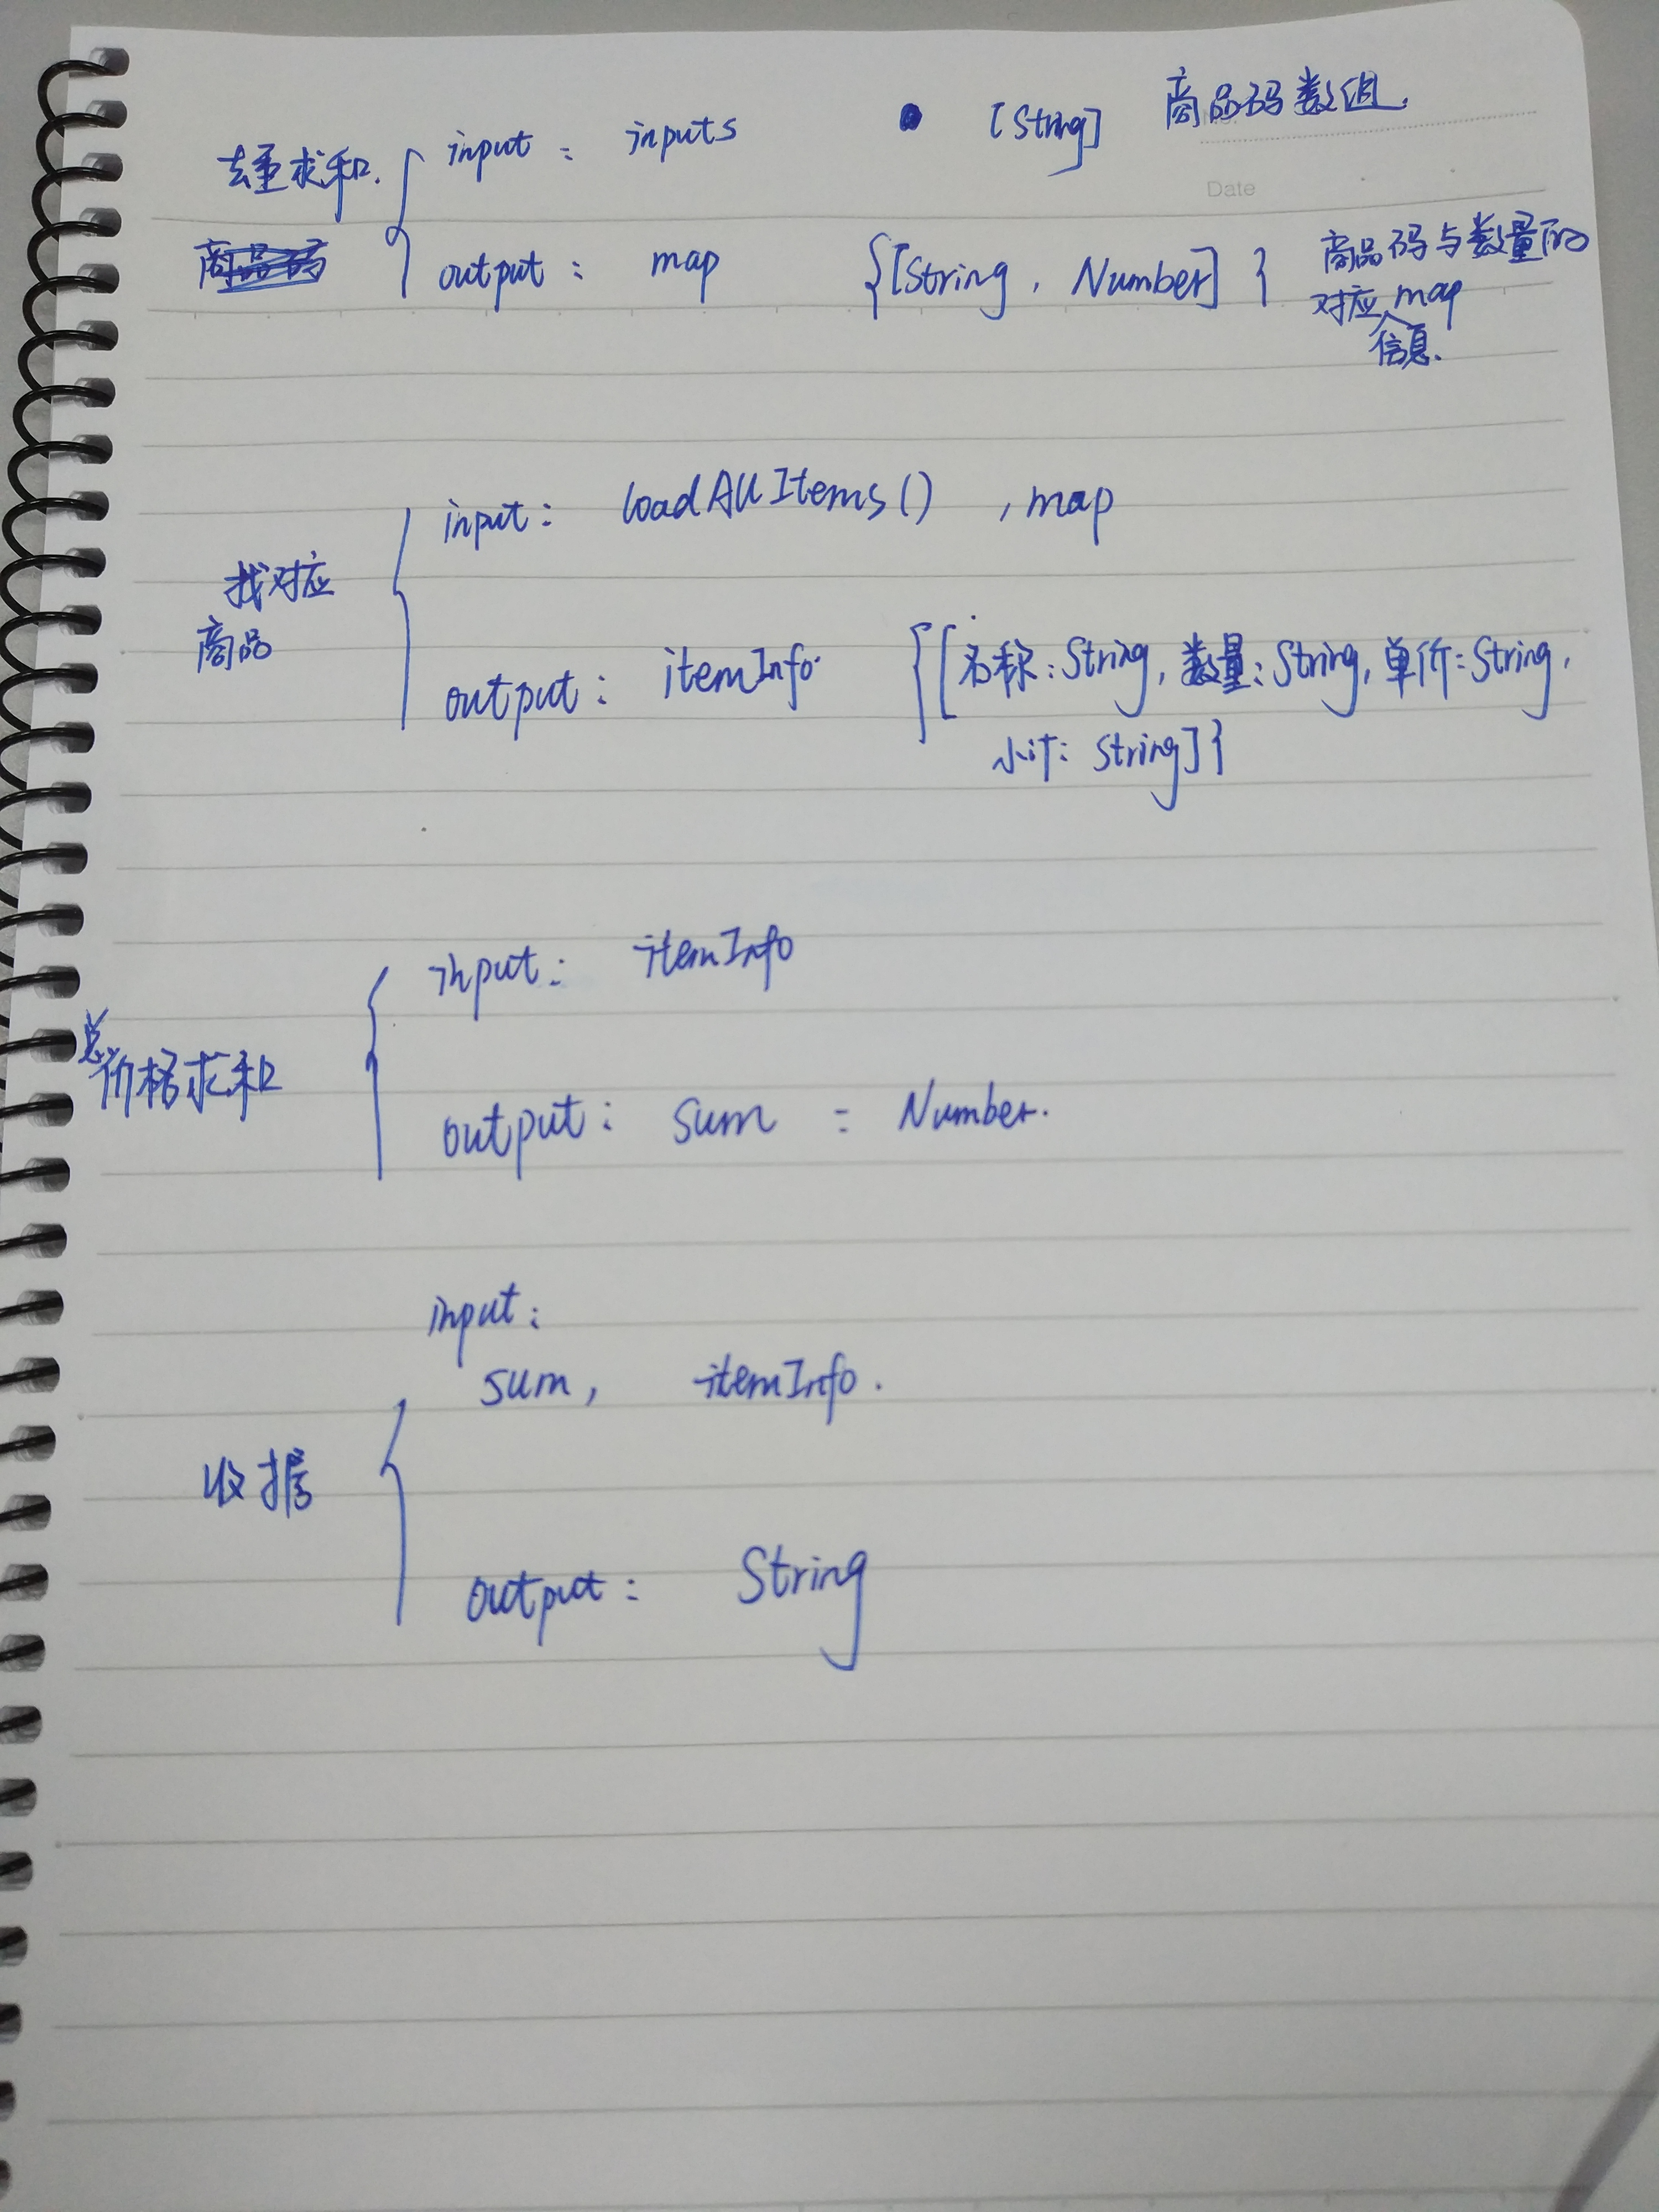 去重求和. input : inputs [String] 商品码数组.
Date
商品码 output : map {[String, Number] } 商品码与数量的
对应 map
信息.
input : loadAllItems() , map
找对应
商品
output : itemInfo. {[名称:String, 数量:String, 单价:String,
小计: String]}
input : itemInfo
总价格求和
output : sum : Number.
input :
sum, itemInfo.
收据
output : String